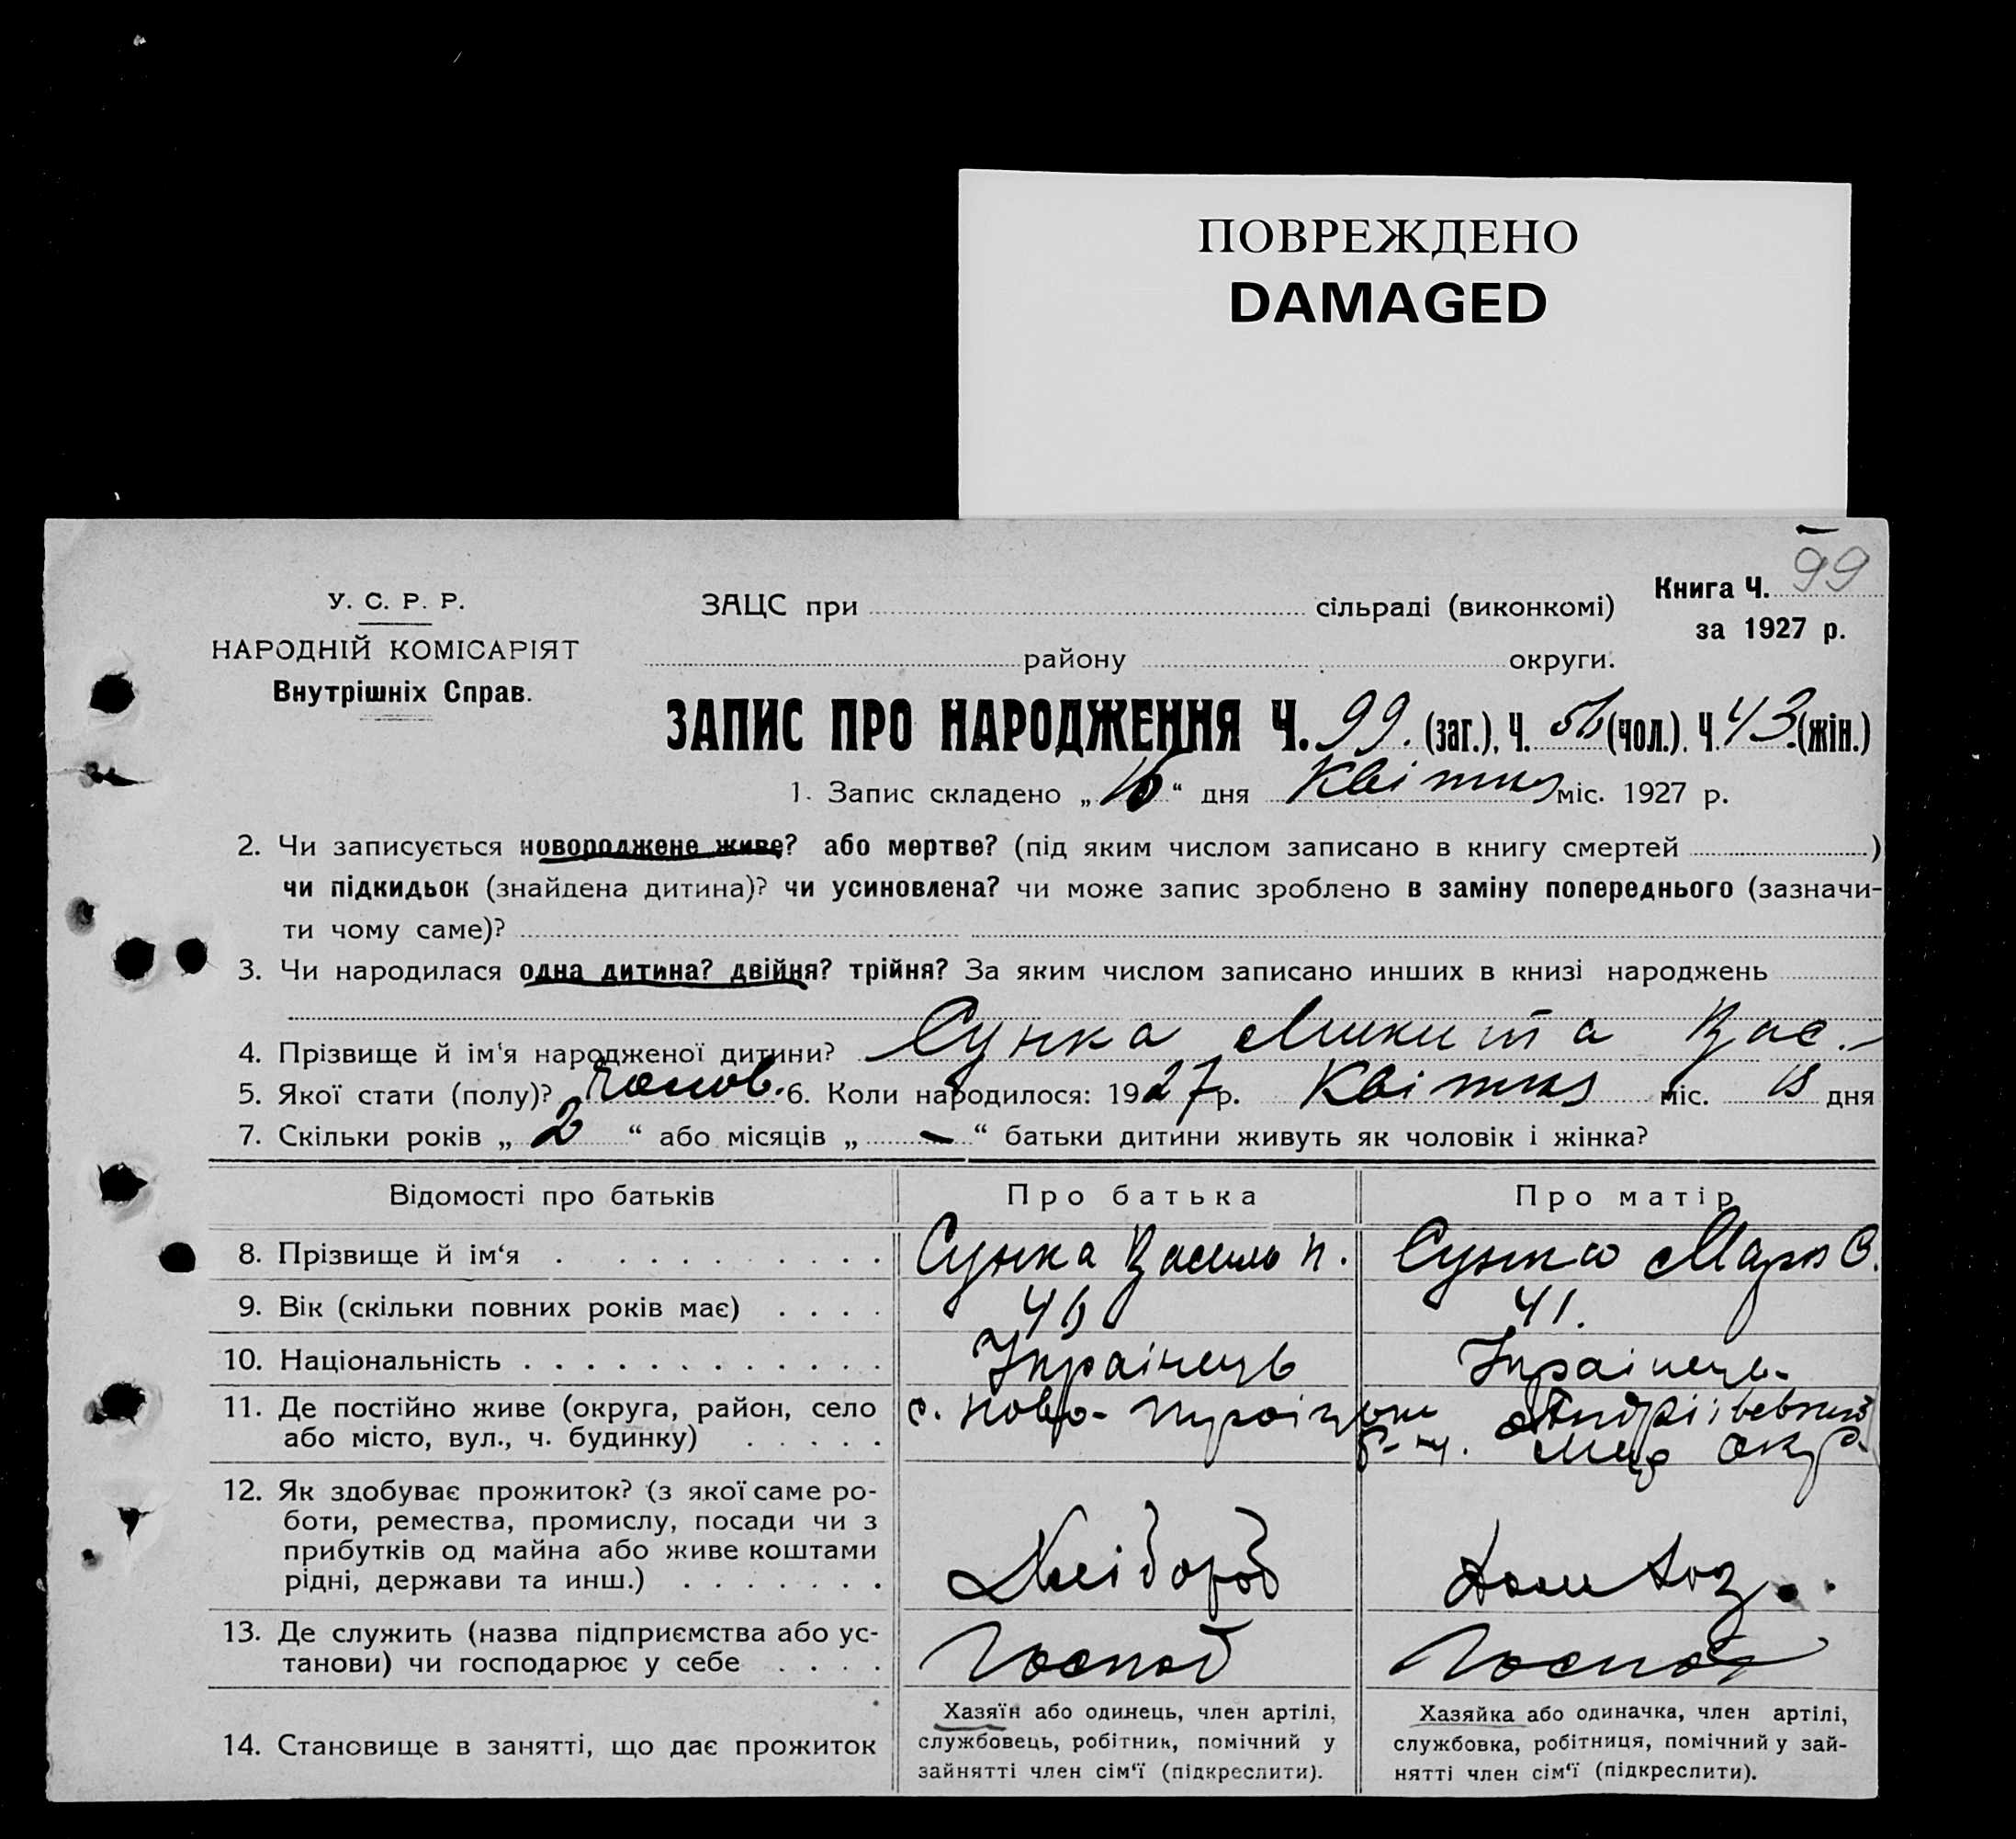 ПОВРЕЖДЕНО
DAMAGED
99
У. С. Р. Р.
НАРОДНІЙ КОМІСАРІЯТ
Внутрішніх Справ.
ЗАЦС при сільраді (виконкомі)
Книга Ч.
за 1927 р.
району округи.
ЗАПИС ПРО НАРОДЖЕННЯ Ч. 99. (заг.), Ч. 56 (чол.). Ч. 43 (жін.)
1. Запис складено „ 16 “ дня Квітня міс. 1927 р.
2. Чи записується новороджене живе? або мертве? (під яким числом записано в книгу смертей )
чи підкидьок (знайдена дитина)? чи усиновлена? чи може запис зроблено в заміну попереднього (зазначи-
ти чому саме)?
3. Чи народилася одна дитина? двійня? трійня? За яким числом записано инших в книзі народжень
4. Прізвище й ім‘я народженої дитини? Сунка Микита Вас.
5. Якої стати (полу)? чолов. 6. Коли народилося: 1927 р. Квітня міс. 15 дня
7. Скільки років „ 2 “ або місяців „ – “ батьки дитини живуть як чоловік і жінка?
Відомості про батьків Про батька Про матір
8. Прізвище й ім‘я Сунка Василь П. Сунка Марія С.
9. Вік (скільки повних років має) 46 41.
10. Національність Українець Українець
11. Де постійно живе (округа, район, село
або місто, вул., ч. будинку)
с. Ново-Троіцьке Андріівський
р-н. окр.
12. Як здобуває прожиток? (з якої саме ро-
боти, ремества, промислу, посади чи з
прибутків од майна або живе коштами
рідні, держави та инш.)
Хлібороб Дом хоз.
13. Де служить (назва підприємства або ус-
танови) чи господарює у себе
Господ Господ
14. Становище в занятті, що дає прожиток
Хазяїн або одинець, член артілі,
службовець, робітник, помічний у
зайнятті член сім‘ї (підкреслити).
Хазяйка або одиначка, член артілі,
службовка, робітниця, помічний у зай-
нятті член сім‘ї (підкреслити).